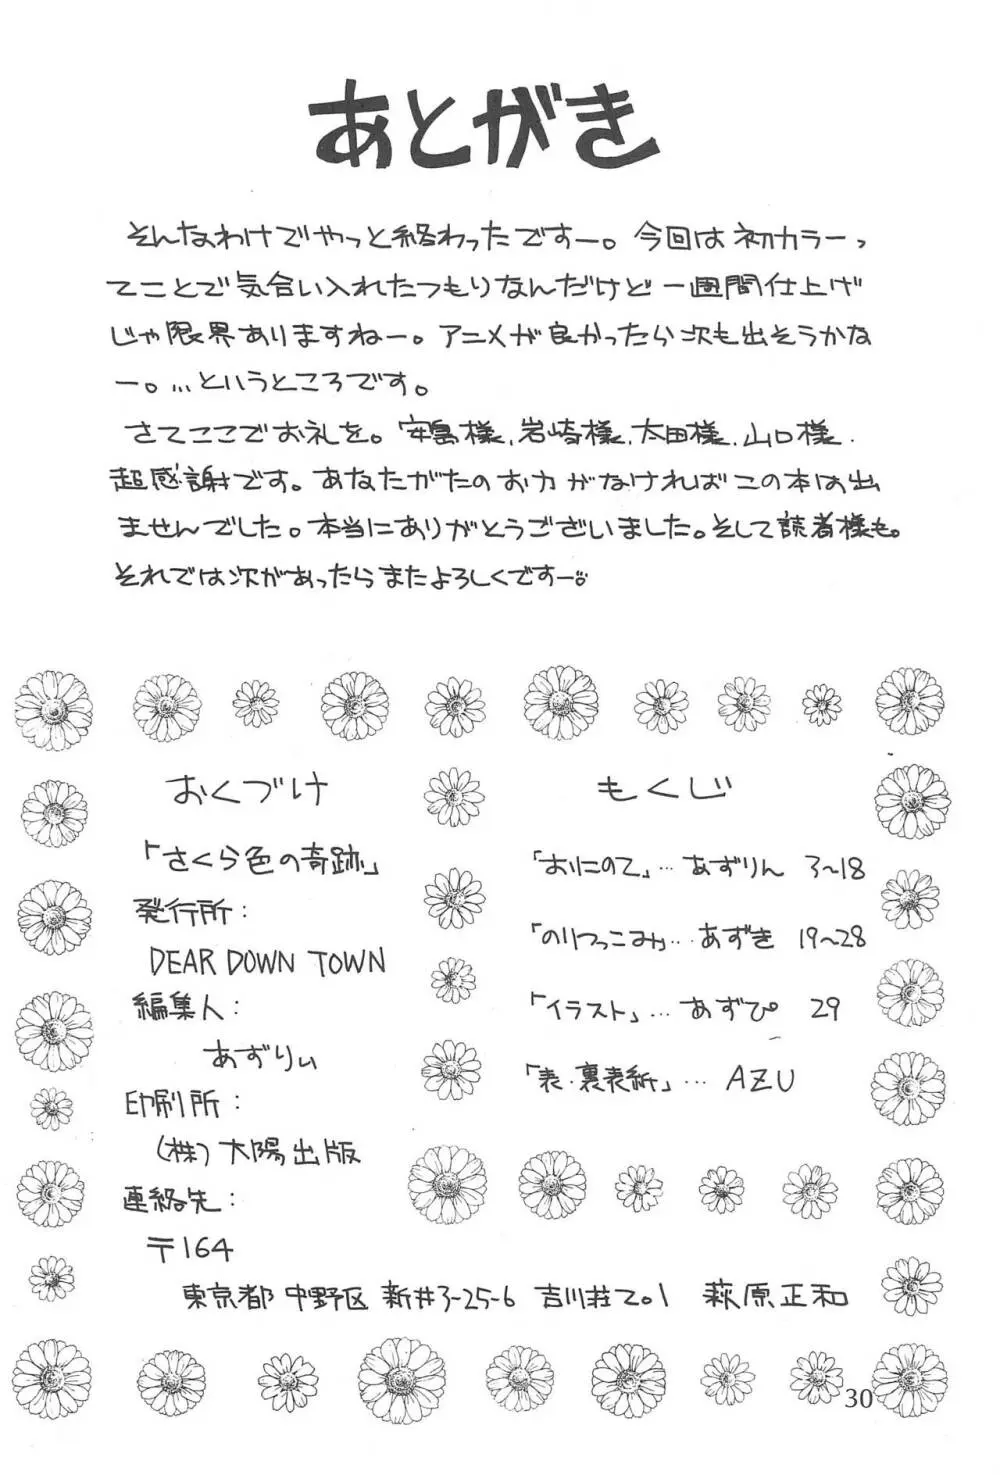 あとがき
そんなわけでやっと終わったですー。今回は初カラーっ
てことで気合い入れたつもりなんだけど一週間仕上げ
じゃ限界ありますねー。アニメが良かったら次も出そうかな
ー。…というところです。
さてここでお礼を。安島様、岩崎様、太田様、山口様、
超感謝です。あなたがたのお力がなければこの本は出
ませんでした。本当にありがとうございました。そして読者様も。
それでは次があったらまたよろしくですー。
おくづけ
「さくら色の奇跡」
発行所:
DEAR DOWN TOWN
編集人:
あずりぃ
印刷所:
(株)太陽出版
連絡先:
〒164
東京都中野区新井3-25-6 吉川荘201 萩原正和
もくじ
「おにのて」…あずりん 3~18
「のりつっこみ」…あずき 19~28
「イラスト」…あずぴ 29
「表・裏表紙」…AZU
30